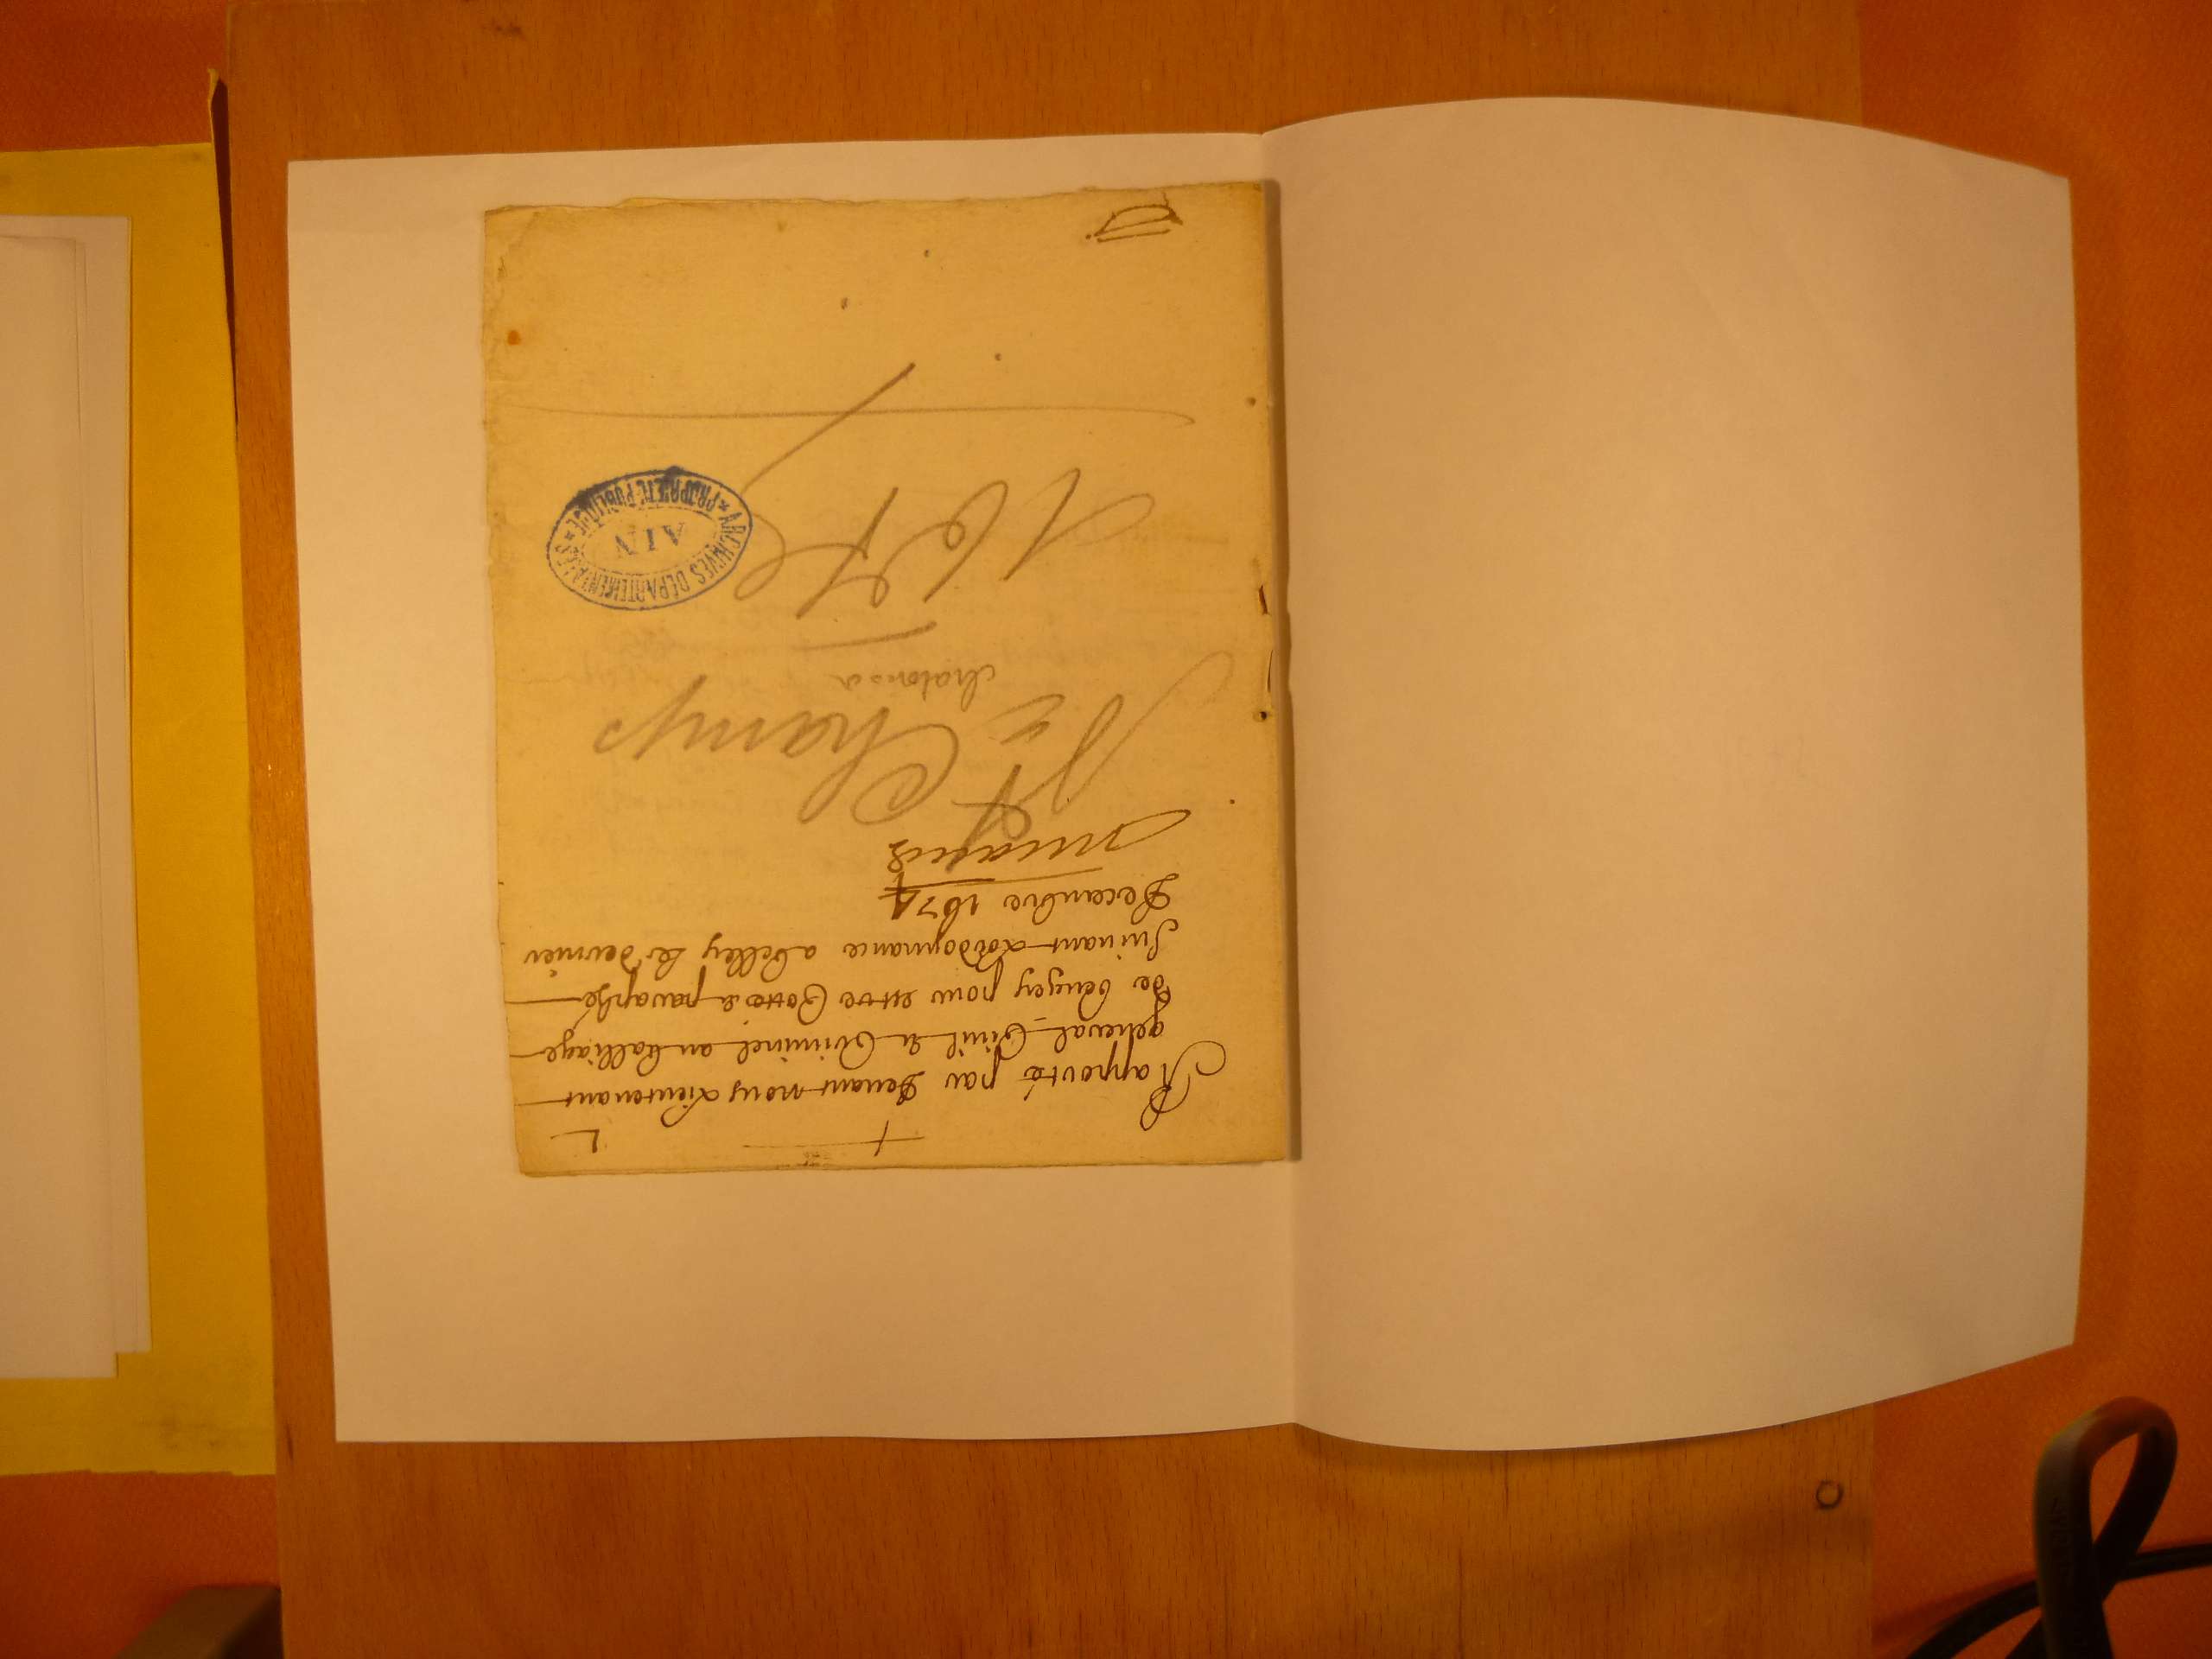 Rapporté par devant nous Lieutenant
general Civil & Criminel au balliage
de beugey pour estre Cotte & paraphé
suivant Lordonnance a belley le dernier
Decembre 1674
St Champ
chatonod
167
ARCHIVES DEPARTEMENTALES
AIN
* PROPRIETE PUBLIQUE *